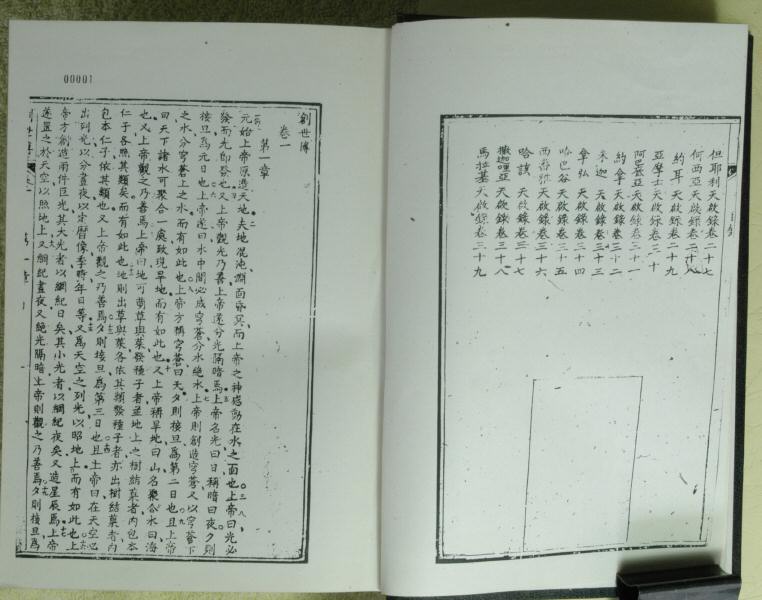 目錄
但耶利天啟錄卷二十七
何西亞天啟錄卷二十八
約耳 天啟錄卷二十九
亞摩士天啟錄卷三十
阿巴底亞天啟錄卷三十一
約拿 天啟錄卷三十二
米迦 天啟錄卷三十三
拿弘 天啟錄卷三十四
哈巴谷天啟錄卷三十五
西番雅天啟錄卷三十六
哈該 天啟錄卷三十七
撒迦哩亞天啟錄卷三十八
馬拉基天啟錄卷三十九
00001
創世傳
卷一
第一章
元始上帝原造天地夫地混沌淵面昏冥而上帝之神感動在水之面也上帝曰光必
發而光即發也又上帝觀光乃善上帝遂分光隔暗焉上帝名光曰日稱暗曰夜夕則
接旦爲元日也上帝遂曰水中間必成穹蒼分水絕水上帝則創造穹蒼又以穹蒼下
之水分穹蒼上之水而有如此也上帝方稱穹蒼曰天夕則接旦爲第二日也且上帝
曰天下諸水可聚合一處致現旱地而有如此也又上帝稱旱地曰山名聚合水曰海
也又上帝觀之乃善焉上帝曰地可萌草與菜發種子者並地上之樹結菓者內包本
仁子各照其類矣而有如此也地則出草與菜各依其類發種子者亦出樹結菓者內
包本仁子依其類也又上帝觀之乃善焉夕則接旦爲第三日也且上帝曰在天空必
出列光以分晝夜以定曆像季時年日等又爲天空之列光以昭地上而有如此也上
帝方創造兩件巨光其大光者以綱紀日矣其小光者以綱紀夜矣又造星辰焉上帝
遂置之於天空以照地上又綱紀晝夜又絕光隔暗上帝則觀之乃善焉夕則接旦爲